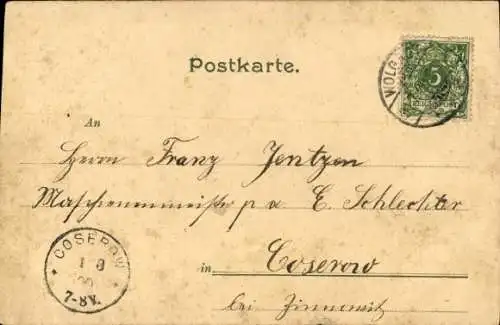 WOLG
5
Postkarte.
An
Herrn Franz Jentzen
Maschinenmeister p a. E. Schlechter
COSEROW
7-8 V.
in Coserow
bei Zinnowitz